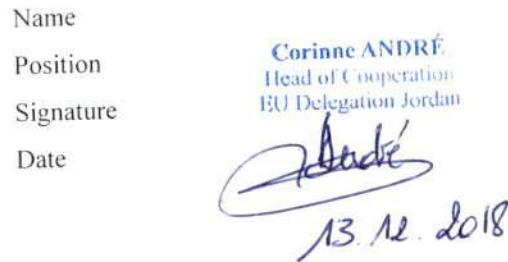 Name
Position
Signature
Date
Corinne ANDRÉ
Head of Cooperation
EU Delegation Jordan
André
13.12.2018